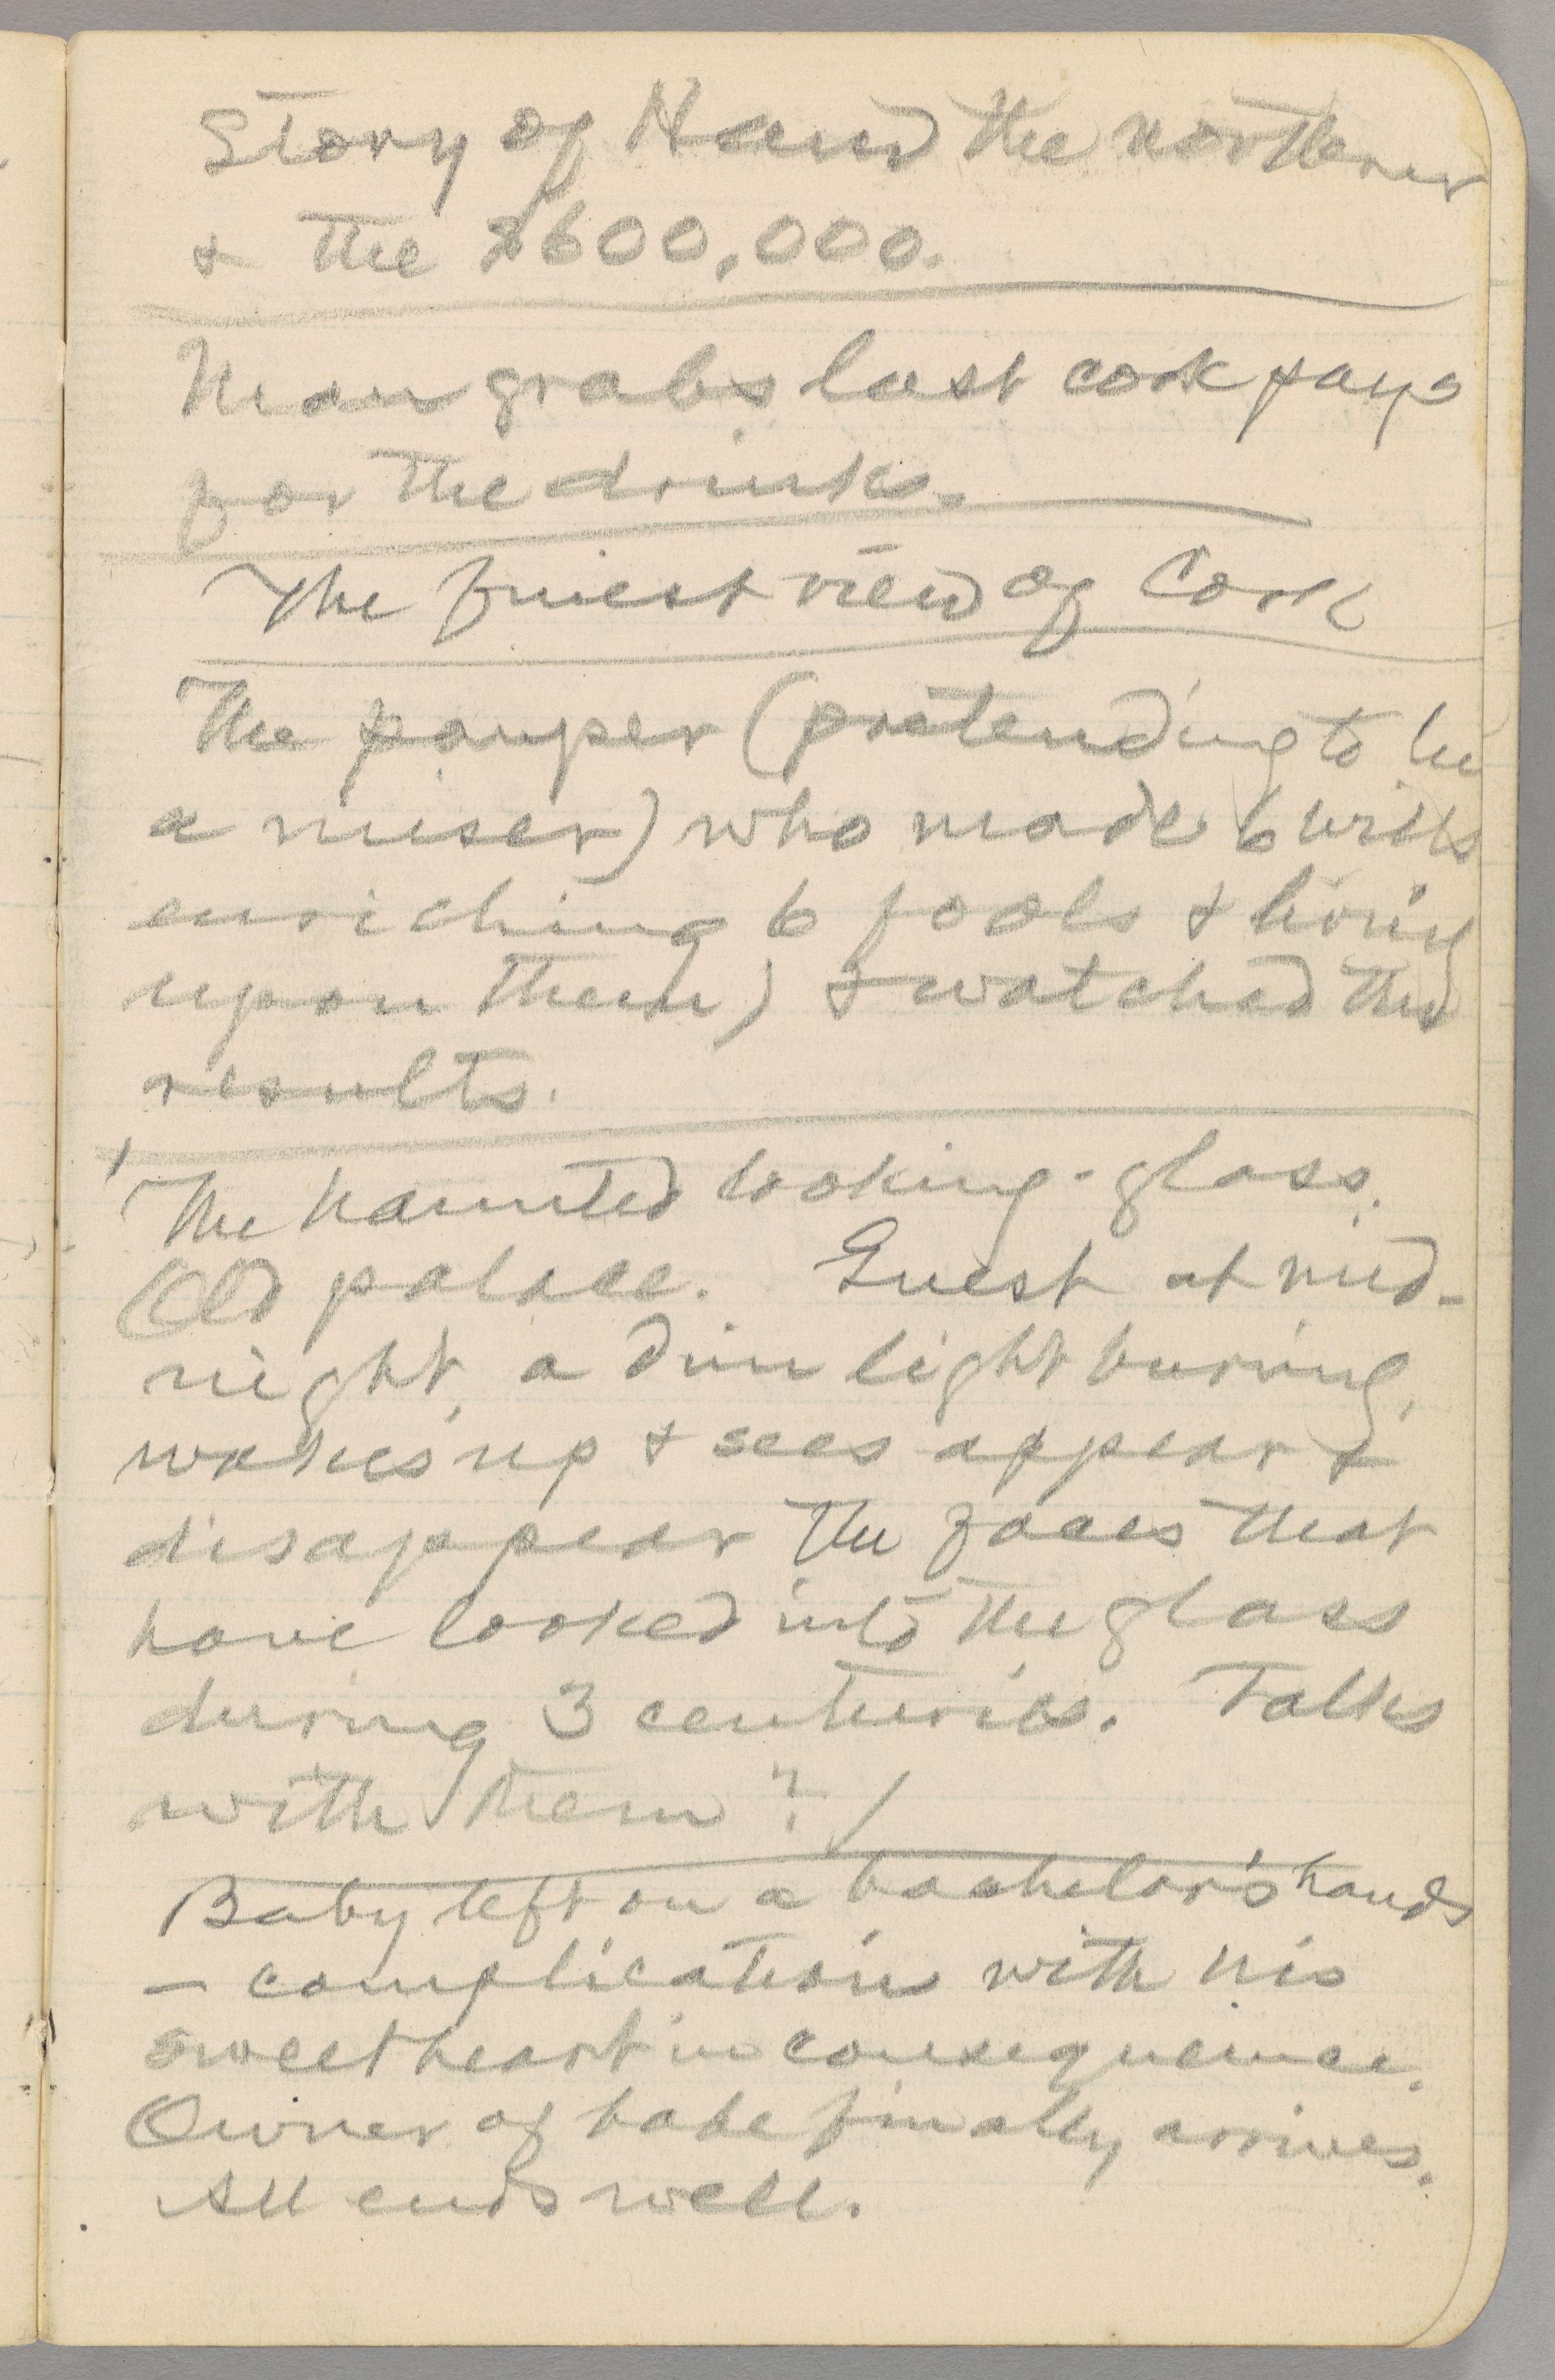 Story of Hand the northerner
& the $600,000.
Man grabs last cork pays
for the drinks.
The finest view of Cork
The pauper (pretending to be
a miser) who made 6 wills
enriching 6 fools & living
upon them) & watched the
results.
The haunted looking-glass.
Old palace. Guest at mid-
night, a dim light burning,
wakes up & sees appear &
disappear the faces that
have looked into the glass
during 3 centuries. Talks
with them?
Baby left on a bachelor's hands
— complications with his
sweetheart in consequence.
Owner of babe finally arrives.
All ends well.